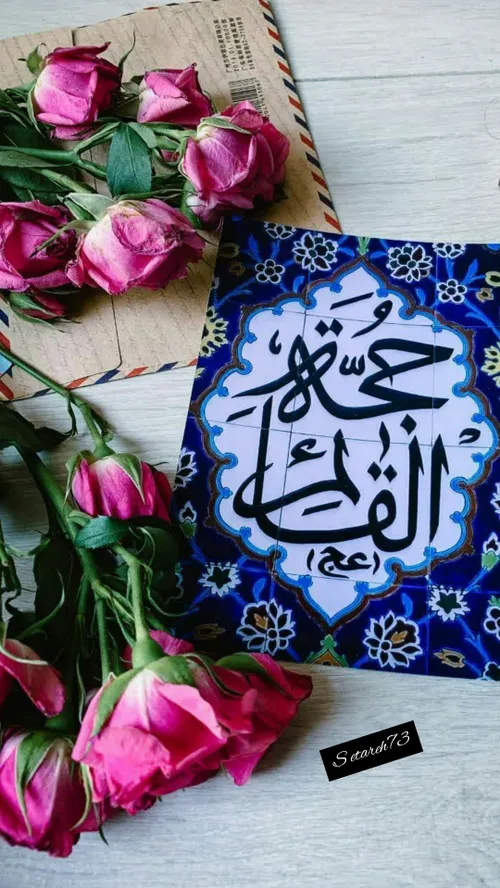 حجّة
القائم
(عج)
Setareh73